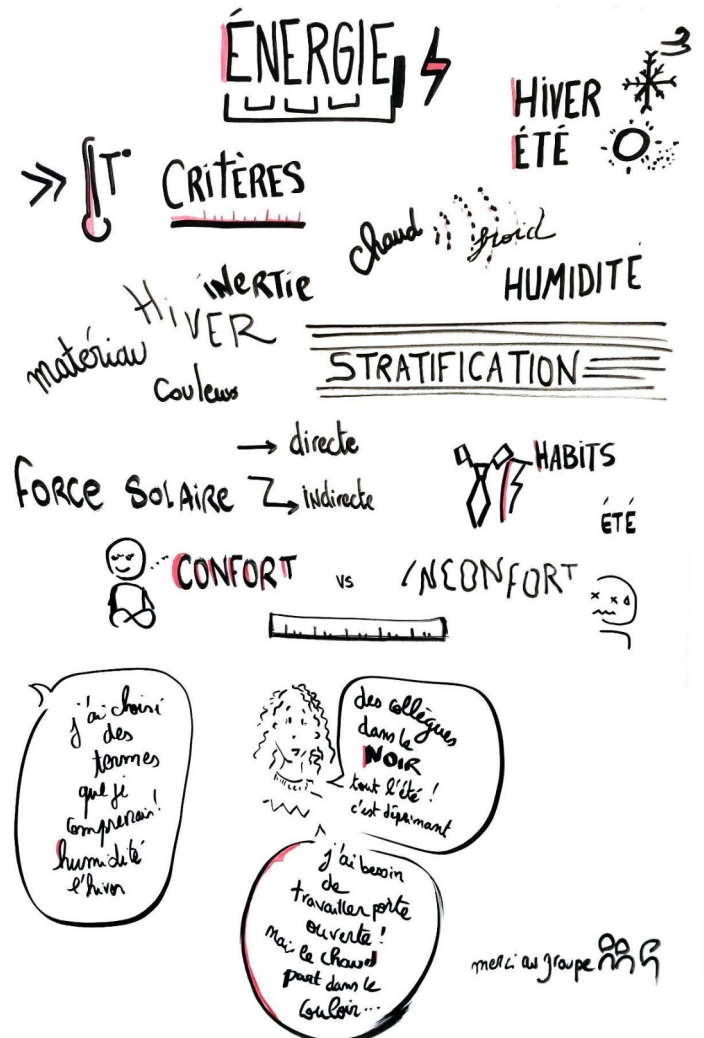 ÉNERGIE
HIVER
ÉTÉ
T°
CRITÈRES
chaud froid
HUMIDITÉ
INERTIE
HIVER
matériau
Couleurs
STRATIFICATION
FORCE SOLAIRE
→ directe
→ indirecte
HABITS
ÉTÉ
CONFORT vs INCONFORT
j'ai choisi
des
termes
que je
comprenais!
humidité
l'hiver
des collègues
dans le
NOIR
tout l'été !
c'est déprimant
j'ai besoin
de
travailler porte
ouverte !
Mais le chaud
part dans le
couloir...
merci au groupe